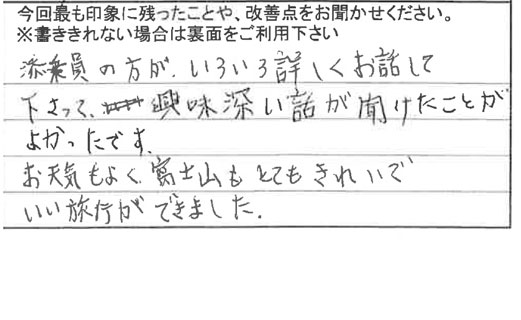 今回最も印象に残ったことや、改善点をお聞かせください。
※書ききれない場合は裏面をご利用下さい
添乗員の方が、いろいろ詳しくお話して
下さって、興味深い話が聞けたことが
よかったです。
お天気もよく、富士山もとてもきれいで
いい旅行ができました。